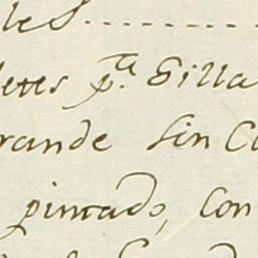 les.........
letes p.ª Silla
rande sin Co
pintado, con